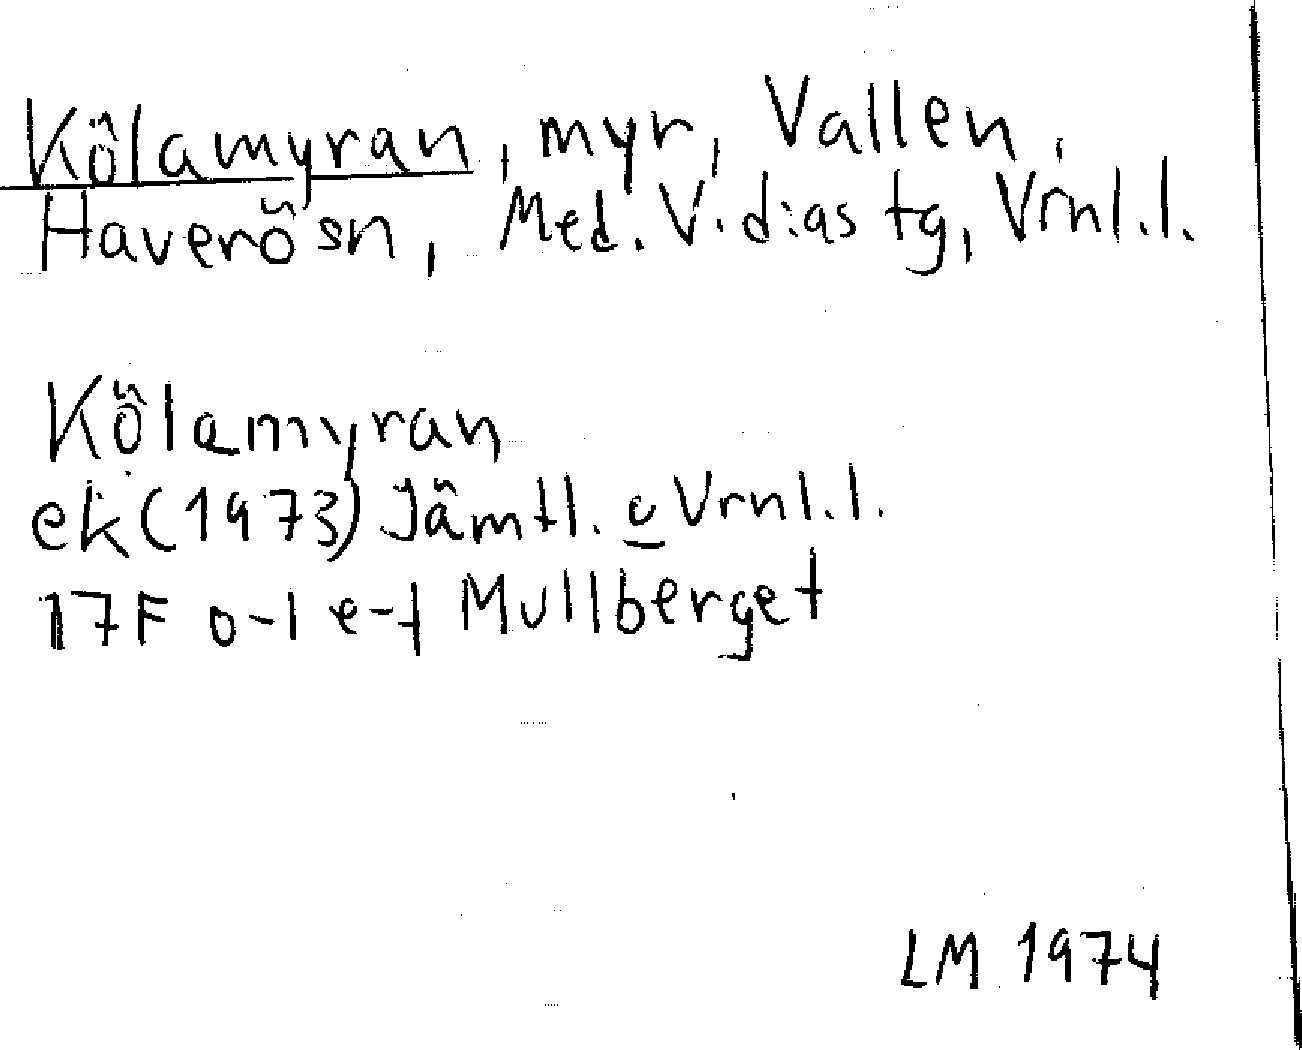 Kölamyran, myr, Vallen,
Haverö sn, Med. V. d:as tg, Vrnl.l.
Kölamyran
ek (1973) Jämtl. o Vrnl.l.
17F o-l e-f Mullberget
LM 1974